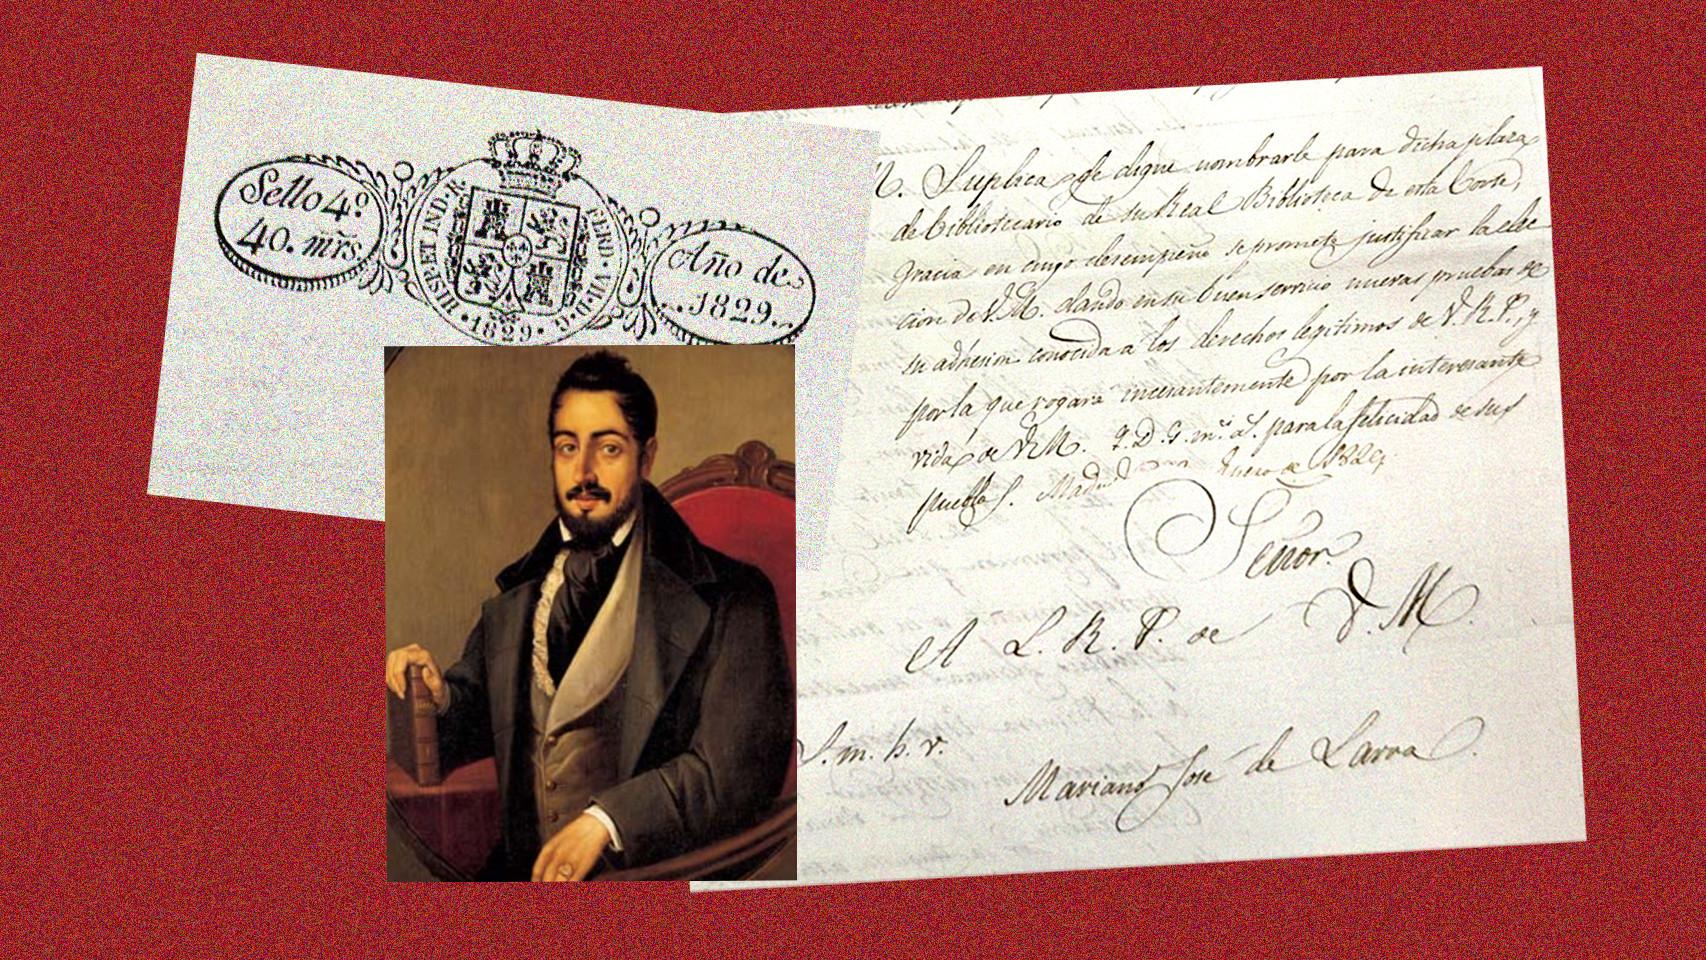 Sello 4º
40. mrs.
HISP. ET IND. R.
FERD. VII. D. G.
.1829.
Año de
.1829.
Suplica se digne nombrarle para dicha plaza
de bibliotecario de su Real Biblioteca de esta Corte,
gracia en cuyo desempeño se promete justificar la elec
cion de V.M. dando en su buen servicio nuevas pruebas de
su adhesion conocida a los derechos legitimos de V.R.P., y
por la que rogara incesantemente por la interesante
vida de V.M. q. D. g. ms. as. para la felicidad de sus
pueblos. Madrid Enero de 1829.
Señor.
A L. R. P. de V. M.
S. m. h. v.
Mariano José de Larra